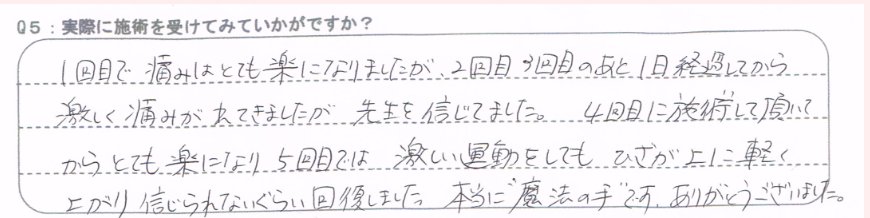 Q5:実際に施術を受けてみていかがですか?
1回目で痛みはとても楽になりましたが、2回目3回目のあと1日経過してから
激しく痛みが出てきましたが 先生を信じてました。 4回目に施術して頂いて
からとても楽になり 5回目では 激しい運動をしても ひざが上に軽く
上がり 信じられないぐらい回復しました 本当に"魔法の手"です。ありがとうございました。